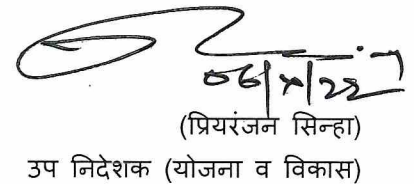 (प्रियरंजन सिन्हा)
उप निदेशक (योजना व विकास)